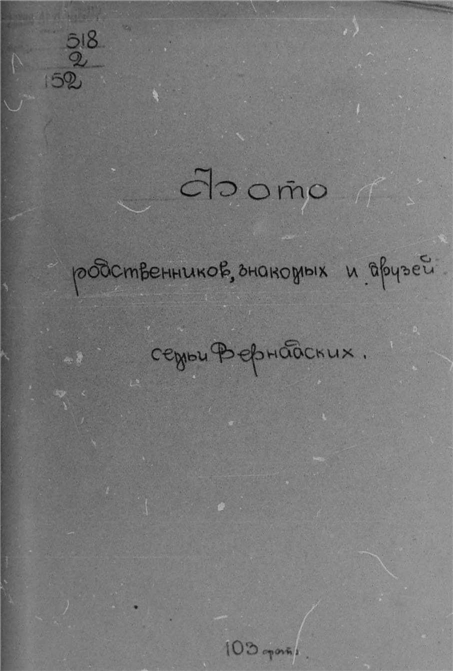 518
2
152
Фото
родственников, знакомых и друзей
семьи Вернадских.
103 фото.